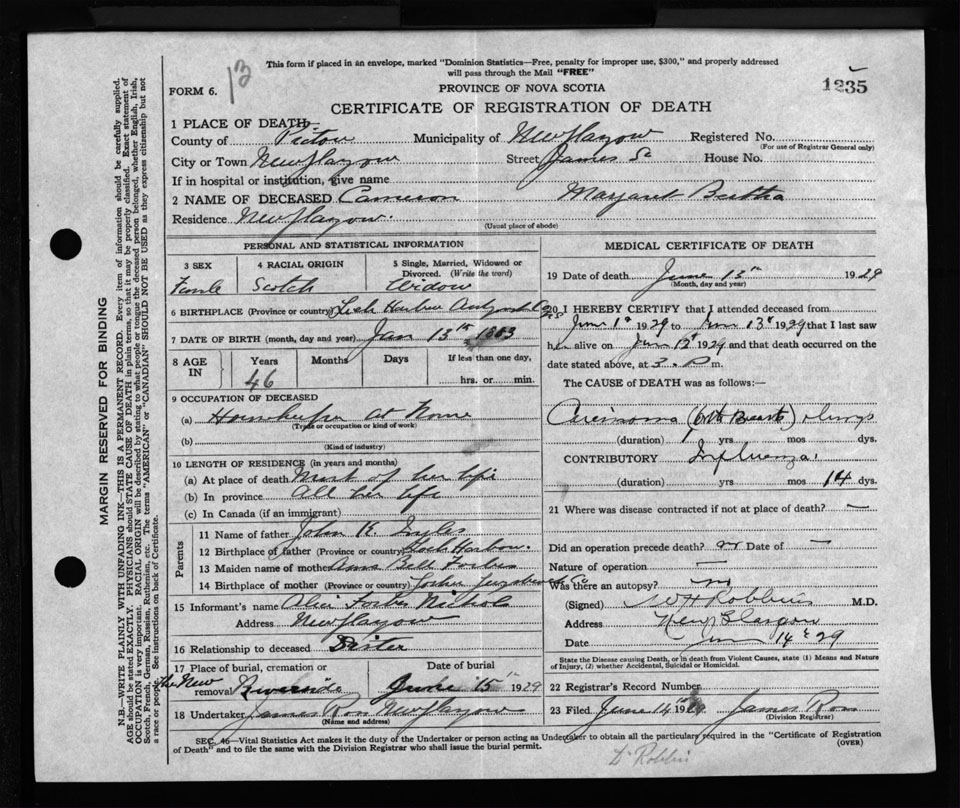 This form if placed in an envelope, marked "Dominion Statistics—Free, penalty for improper use, $300," and properly addressed
will pass through the Mail "FREE"
13
1235
FORM 6.
PROVINCE OF NOVA SCOTIA
CERTIFICATE OF REGISTRATION OF DEATH
1 PLACE OF DEATH
County of Pictou Municipality of New Glasgow Registered No.
(For use of Registrar General only)
City or Town New Glasgow Street James St House No.
If in hospital or institution, give name
2 NAME OF DECEASED Cameron Margaret Bertha
Residence New Glasgow.
(Usual place of abode)
PERSONAL AND STATISTICAL INFORMATION
3 SEX
Female
4 RACIAL ORIGIN
Scotch
5 Single, Married, Widowed or
Divorced. (Write the word)
Widow
6 BIRTHPLACE (Province or country) Harbour
7 DATE OF BIRTH (month, day and year) Jan 13th 1883
8 AGE
IN
Years
46
Months
Days
If less than one day,
hrs. or min.
9 OCCUPATION OF DECEASED
(a) Housekeeper At Home
(Trade or occupation or kind of work)
(b)
(Kind of industry)
10 LENGTH OF RESIDENCE (in years and months)
(a) At place of death Most of her life
(b) In province All her life
(c) In Canada (if an immigrant)
Parents
11 Name of father John
12 Birthplace of father (Province or country) Harbour
13 Maiden name of mother Bell Forbes
14 Birthplace of mother (Province or country)
15 Informant's name Nichol
Address New Glasgow
16 Relationship to deceased Sister
17 Place of burial, cremation or
removal The New Riverside
Date of burial
June 15th 1929
18 Undertaker James Ross New Glasgow
(Name and address)
MEDICAL CERTIFICATE OF DEATH
19 Date of death June 13th 1929
(Month, day and year)
20 I HEREBY CERTIFY that I attended deceased from
June 1st 1929 to June 13th 1929 that I last saw
her alive on June 12th 1929 and that death occurred on the
date stated above, at 3. P. m.
The CAUSE of DEATH was as follows:—
Carcinoma (both Breasts) & lungs
(duration) 1 yrs mos dys.
CONTRIBUTORY Influenza.
(duration) yrs mos 14 dys.
21 Where was disease contracted if not at place of death? —
Did an operation precede death? no Date of —
Nature of operation —
Was there an autopsy? no
(Signed) W H Robbins M.D.
Address New Glasgow
Date June 14th 29
State the Disease causing Death, or in death from Violent Causes, state (1) Means and Nature
of Injury, (2) whether Accidental, Suicidal or Homicidal.
22 Registrar's Record Number
23 Filed, June 14th 1929 James Ross
(Division Registrar)
SEC. 46—Vital Statistics Act makes it the duty of the Undertaker or person acting as Undertaker to obtain all the particulars required in the "Certificate of Registration
of Death" and to file the same with the Division Registrar who shall issue the burial permit. (OVER)
Dr Robbins
MARGIN RESERVED FOR BINDING
N.B.—WRITE PLAINLY WITH UNFADING INK—THIS IS A PERMANENT RECORD. Every item of information should be carefully supplied.
AGE should be stated EXACTLY. PHYSICIANS should STATE CAUSE OF DEATH in plain terms, so that it may be properly classified. Exact statement of
OCCUPATION is very important. RACIAL ORIGIN will be described by stating to what people or tongue the deceased person belonged, whether English, Irish,
Scotch, French, German, Russian, Ruthenian, etc. The terms "AMERICAN" or "CANADIAN" SHOULD NOT BE USED as they express citizenship but not
a race or people. See instructions on back of Certificate.